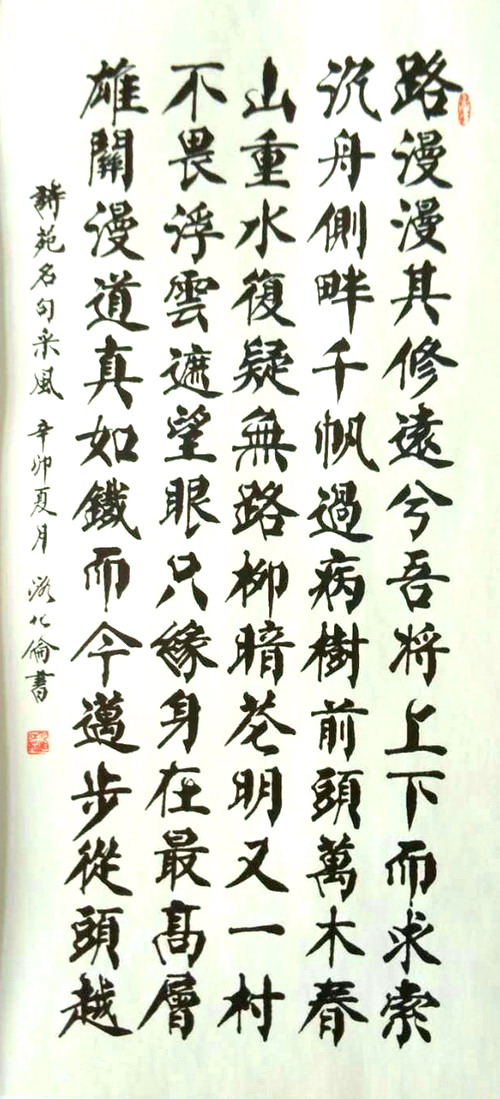 路漫漫其修遠兮吾将上下而求索
沉舟側畔千帆過病樹前頭萬木春
山重水復疑無路柳暗花明又一村
不畏浮雲遮望眼只緣身在最高層
雄關漫道真如鐵而今邁步從頭越
詩苑名句采風 辛卯夏月 倫書